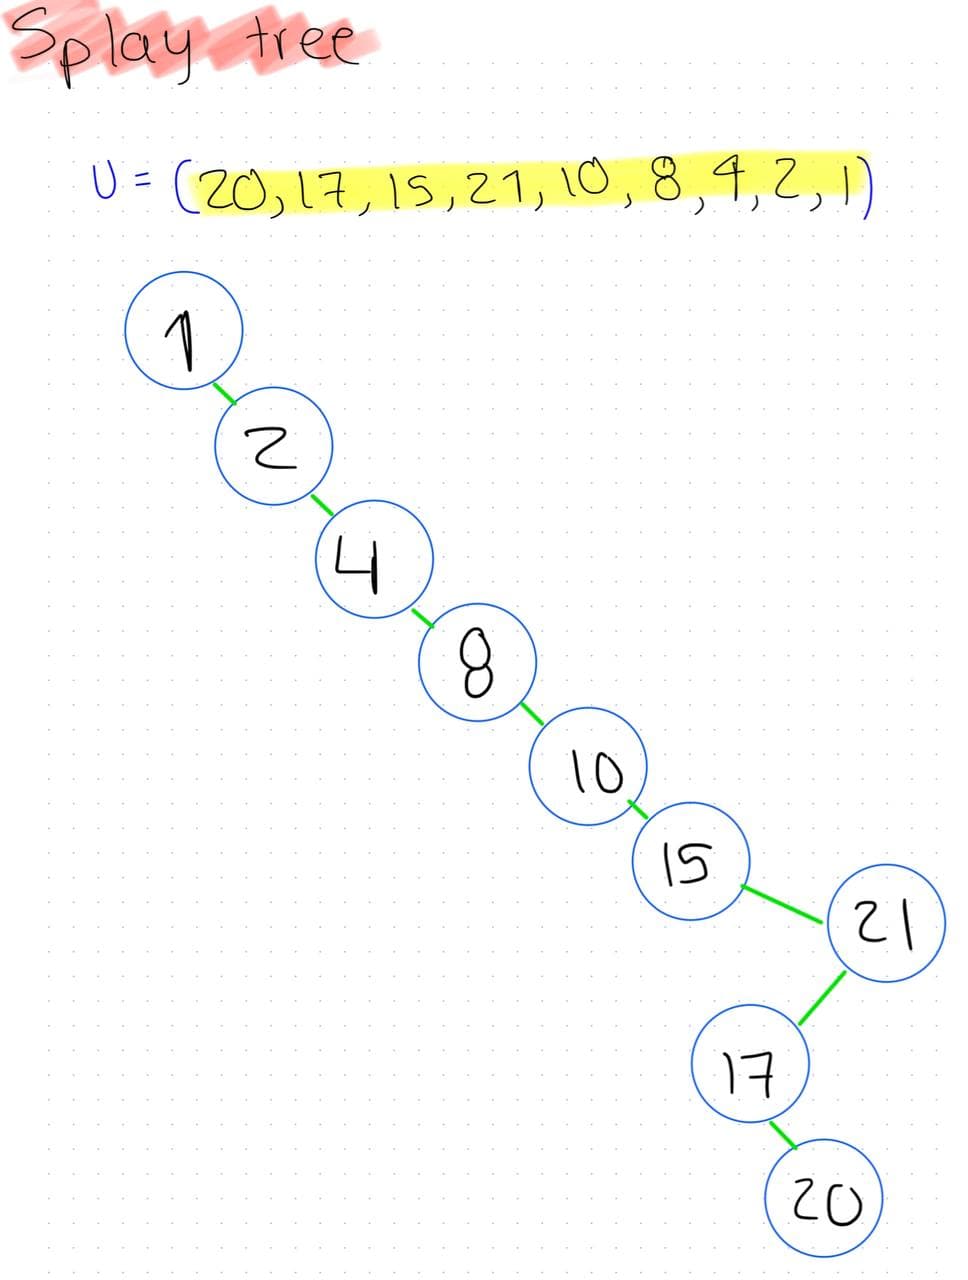 Splay tree
U = (20, 17, 15, 21, 10, 8, 4, 2, 1)
1
2
4
8
10
15
21
17
20